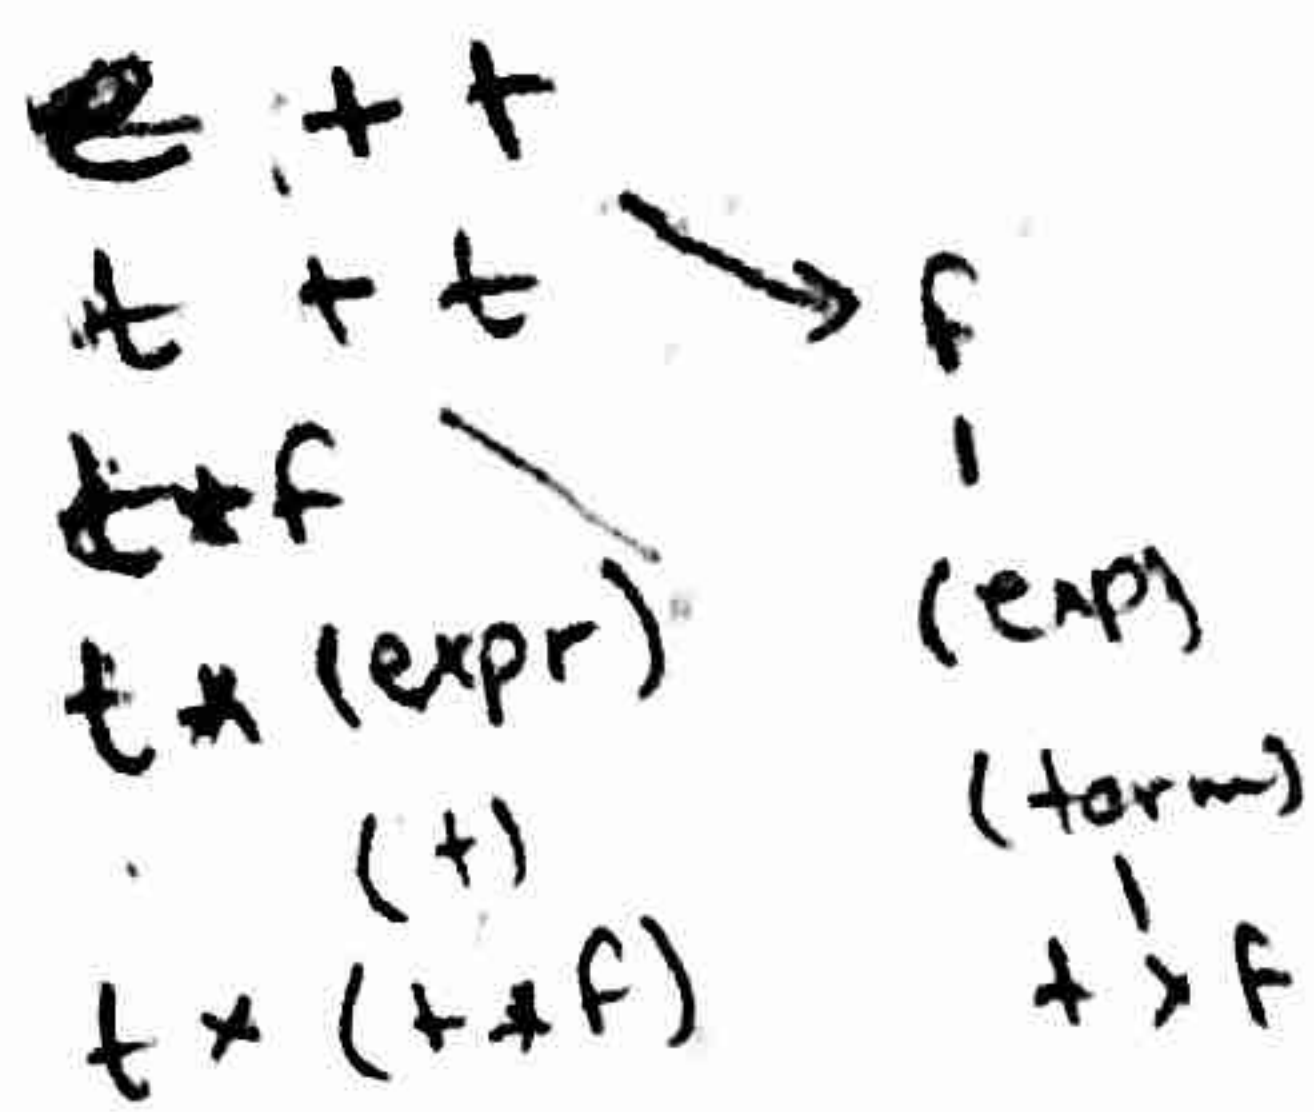 e + t
t + t
t * f
t * (expr)
(t)
t * (t * f)
f
(exp)
(term)
t * f